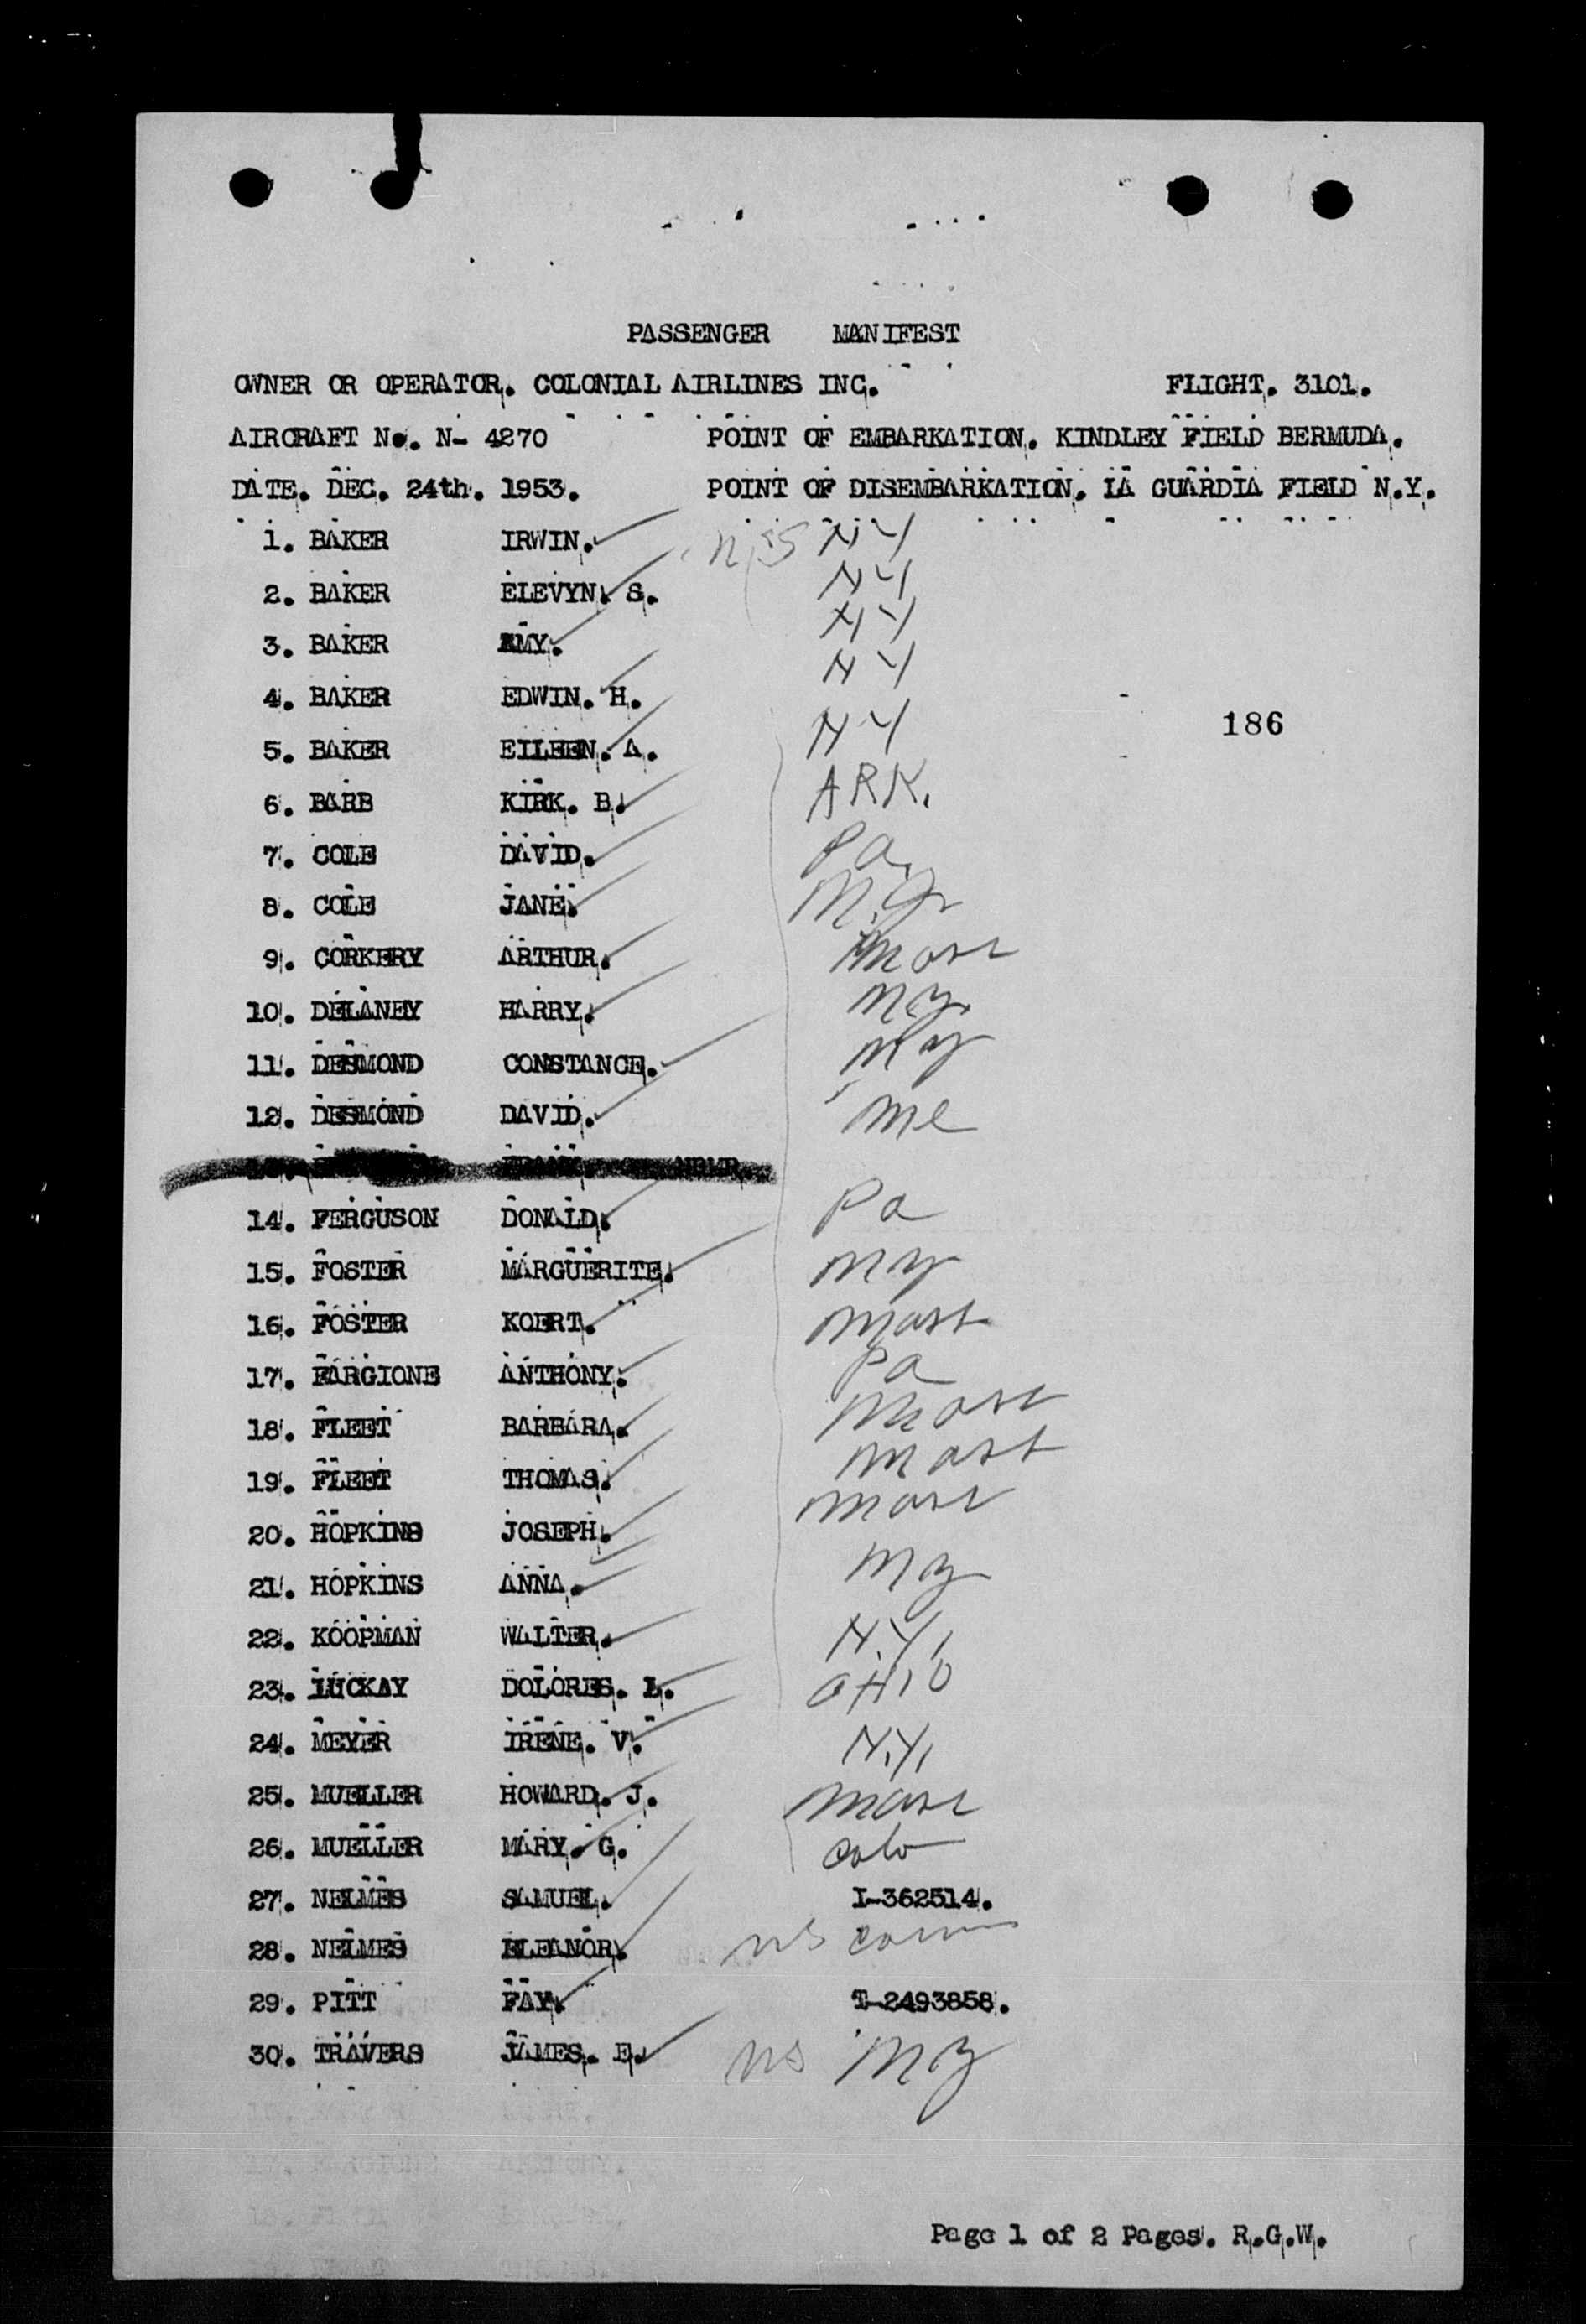 PASSENGER MANIFEST
OWNER OR OPERATOR. COLONIAL AIRLINES INC. FLIGHT. 3101.
AIRCRAFT No. N- 4270 POINT OF EMBARKATION. KINDLEY FIELD BERMUDA.
DATE. DEC. 24th. 1953. POINT OF DISEMBARKATION. LA GUARDIA FIELD N.Y.
1. BAKER IRWIN. NY
2. BAKER ELEVYN. S. NY
3. BAKER AMY. NY
4. BAKER EDWIN. H. NY
186
5. BAKER EILEEN. A. NY
6. BARB KIRK. B. ARK.
7. COLE DAVID. Pa.
8. COLE JANE. N.Y.
9. CORKERY ARTHUR. Mass
10. DELANEY HARRY. NY.
11. DESMOND CONSTANCE. NY
12. DESMOND DAVID. Me
14. FERGUSON DONALD. Pa
15. FOSTER MARGUERITE. NY
16. FOSTER KOERT. Mass
17. FARGIONE ANTHONY. Pa
18. FLEET BARBARA. Mass
19. FLEET THOMAS. Mass
20. HOPKINS JOSEPH. Mass
21. HOPKINS ANNA. NY
22. KOOPMAN WALTER. N.Y.
23. LUCKAY DOLORES. L. OHIO
24. MEYER IRENE. V. N.Y.
25. MUELLER HOWARD. J. Mass
26. MUELLER MARY. G. Colo
27. NELMES SAMUEL. I-362514.
28. NELMES ELEANOR. US Conn
29. PITT FAY. T-2493858.
30. TRAVERS JAMES. E. US NY
Page 1 of 2 Pages. R.G.W.